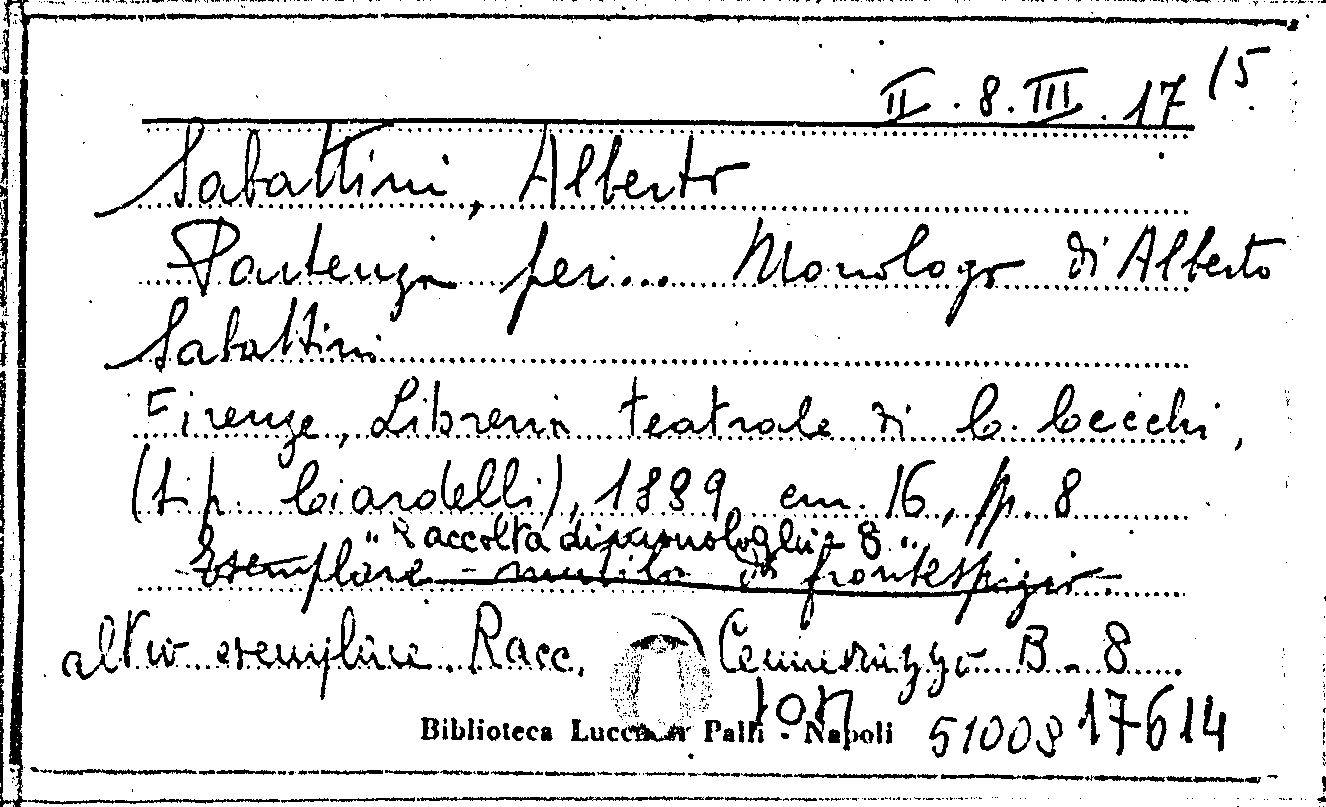 II. 8. III. 17 15
Sabattini, Alberto
Partenza per... Monologo di Alberto
Sabattini
Firenze, Libreria teatrale di C. Cecchi,
(tip. Ciardelli), 1889 cm. 16, pp. 8
"Raccolta di monologhi - 8"
Esemplare mutilo di frontespizio
altro esemplare Racc. B. 8
Biblioteca Lucchesi Palli - Napoli 51008 17614